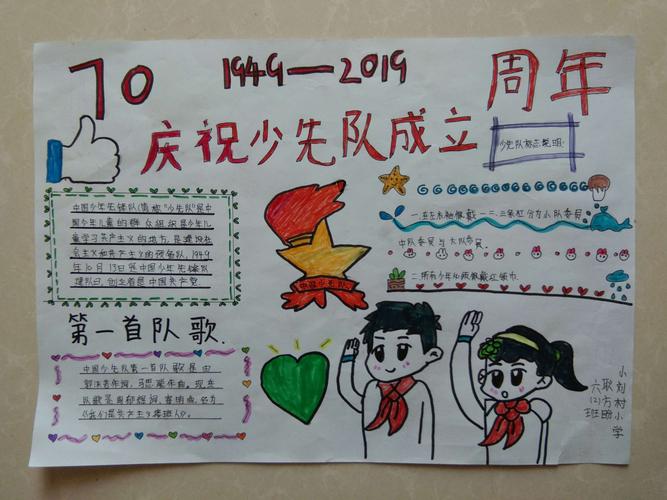 70
1949—2019
周年
庆祝少先队成立
少先队标志说明:
中国少年先锋队(简称"少先队")是中
国少年儿童的群众组织是少年儿
童学习共产主义的地方,是建设社
会主义和共产主义的预备队,1949
年10月13日是中国少年先锋队
建队日,创立者是中国共产党
一.在左衣袖佩戴一、二、三条杠分为小队委员
中队委员与大队委员.
二.所有少年们佩戴红领巾.
中国少先队
第一首队歌.
中国少先队第一首队歌是由
郭沫若作词,马思聪作曲。现在
队歌是周郁辉词,寄明曲,名为
《我们是共产主义接班人》。
小刘村小学
耿方明
六(2)班